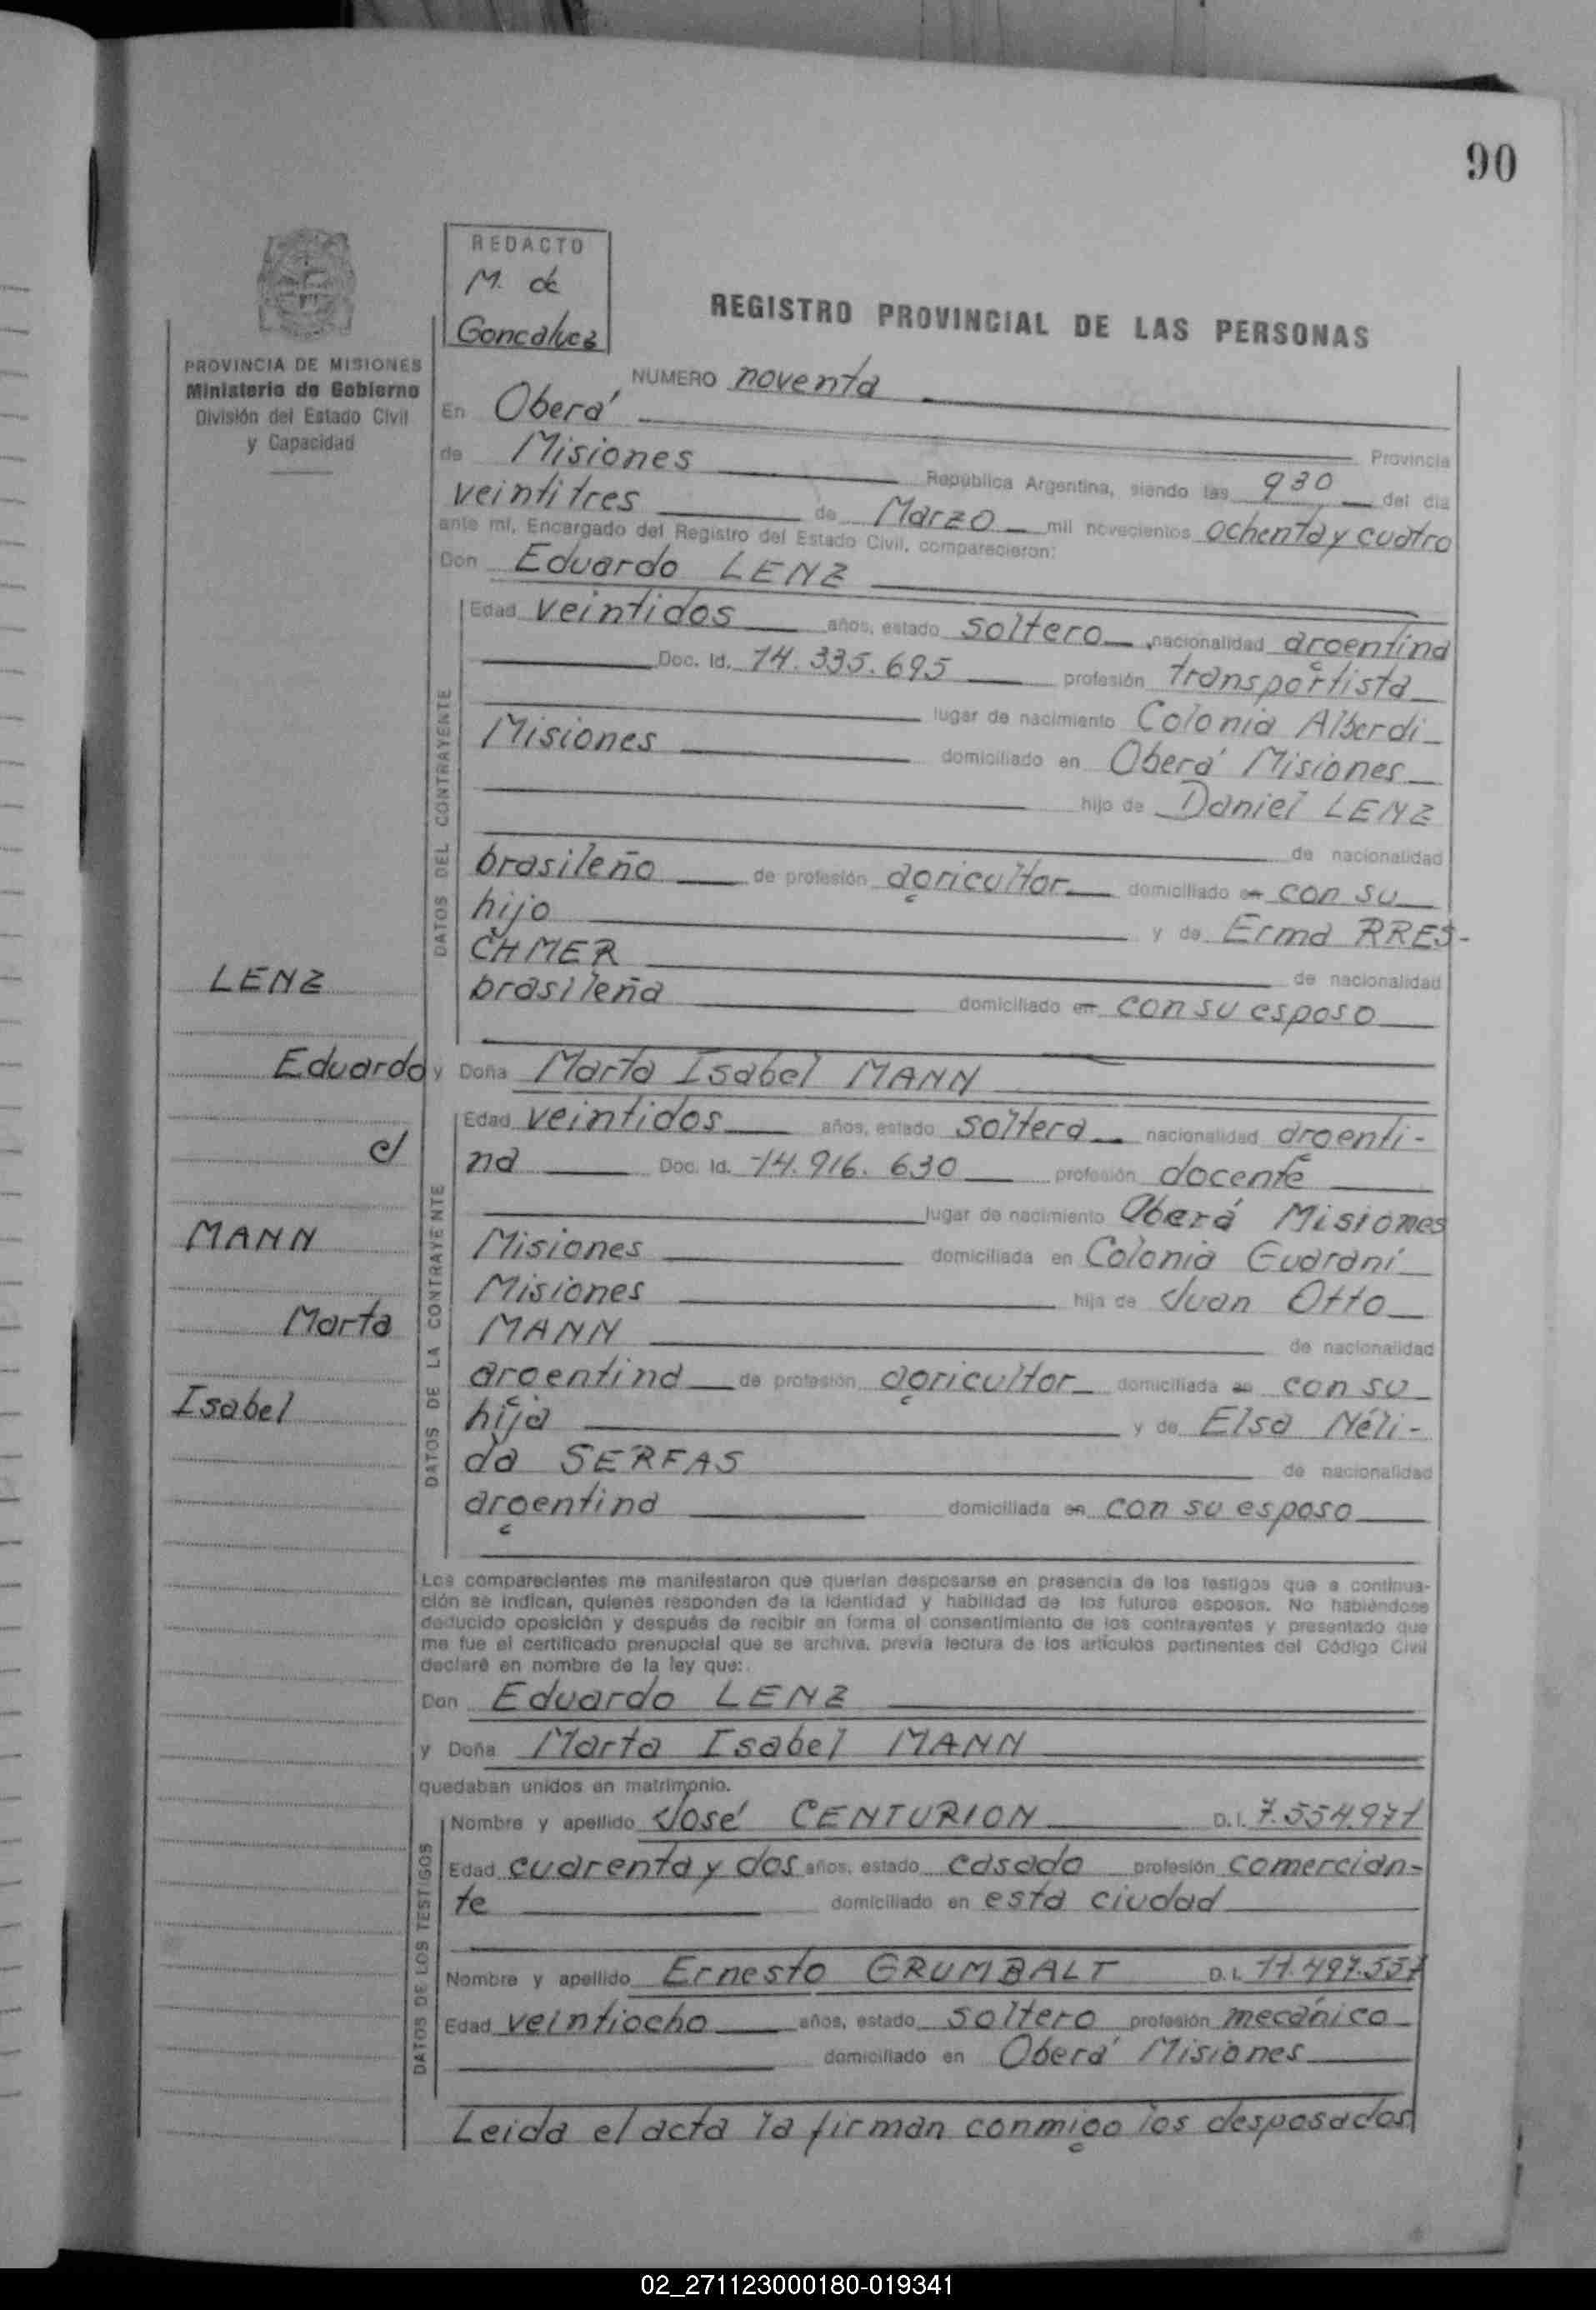 90
REDACTO
M. de
Goncalves
REGISTRO PROVINCIAL DE LAS PERSONAS
PROVINCIA DE MISIONES
Ministerio de Gobierno
División del Estado Civil
y Capacidad
NUMERO noventa
En Oberá
Provincia
de Misiones República Argentina, siendo las 930 del día
veintitres de Marzo mil novecientos ochenta y cuatro
ante mí, Encargado del Registro del Estado Civil, comparecieron:
Don Eduardo LENZ
DATOS DEL CONTRAYENTE
Edad veintidos años, estado soltero nacionalidad argentina
Doc. Id. 14.335.695 profesión transportista
lugar de nacimiento Colonia Alberdi
Misiones domiciliado en Oberá Misiones
hijo de Daniel LENZ
de nacionalidad
brasileño de profesión agricultor domiciliado en con su
hijo y de Erma RRES-
CHMER de nacionalidad
brasileña domiciliado en con su esposo
LENZ
Eduardo
c/
MANN
Marta
Isabel
y Doña Marta Isabel MANN
DATOS DE LA CONTRAYENTE
Edad veintidos años, estado soltera nacionalidad argenti-
na Doc. Id. 14.916.630 profesión docente
lugar de nacimiento Oberá Misiones
Misiones domiciliada en Colonia Guaraní
Misiones hija de Juan Otto
MANN de nacionalidad
argentina de profesión agricultor domiciliada en con su
hija y de Elsa Néli-
da SERFAS de nacionalidad
argentina domiciliada en con su esposo
Los comparecientes me manifestaron que querían desposarse en presencia de los testigos que a continua-
ción se indican, quienes responden de la identidad y habilidad de los futuros esposos. No habiéndose
deducido oposición y después de recibir en forma el consentimiento de los contrayentes y presentado que
me fue el certificado prenupcial que se archiva, previa lectura de los artículos pertinentes del Código Civil
declaré en nombre de la ley que:
Don Eduardo LENZ
y Doña Marta Isabel MANN
quedaban unidos en matrimonio.
DATOS DE LOS TESTIGOS
Nombre y apellido José CENTURION D.I. 7.554.971
Edad cuarenta y dos años, estado casado profesión comercian-
te domiciliado en esta ciudad
Nombre y apellido Ernesto GRUMBALT D.I. 11.497.557
Edad veintiocho años, estado soltero profesión mecánico
domiciliado en Oberá Misiones
Leida el acta la firman conmigo los desposados
02_271123000180-019341